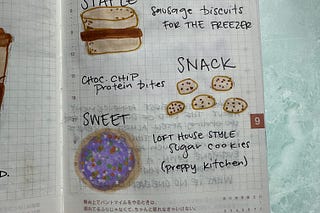 STAPLE
sausage biscuits
FOR THE FREEZER
SNACK
CHOC. CHIP
protein bites
SWEET
LOFTHOUSE STYLE
sugar cookies
(preppy kitchen)
9
D.